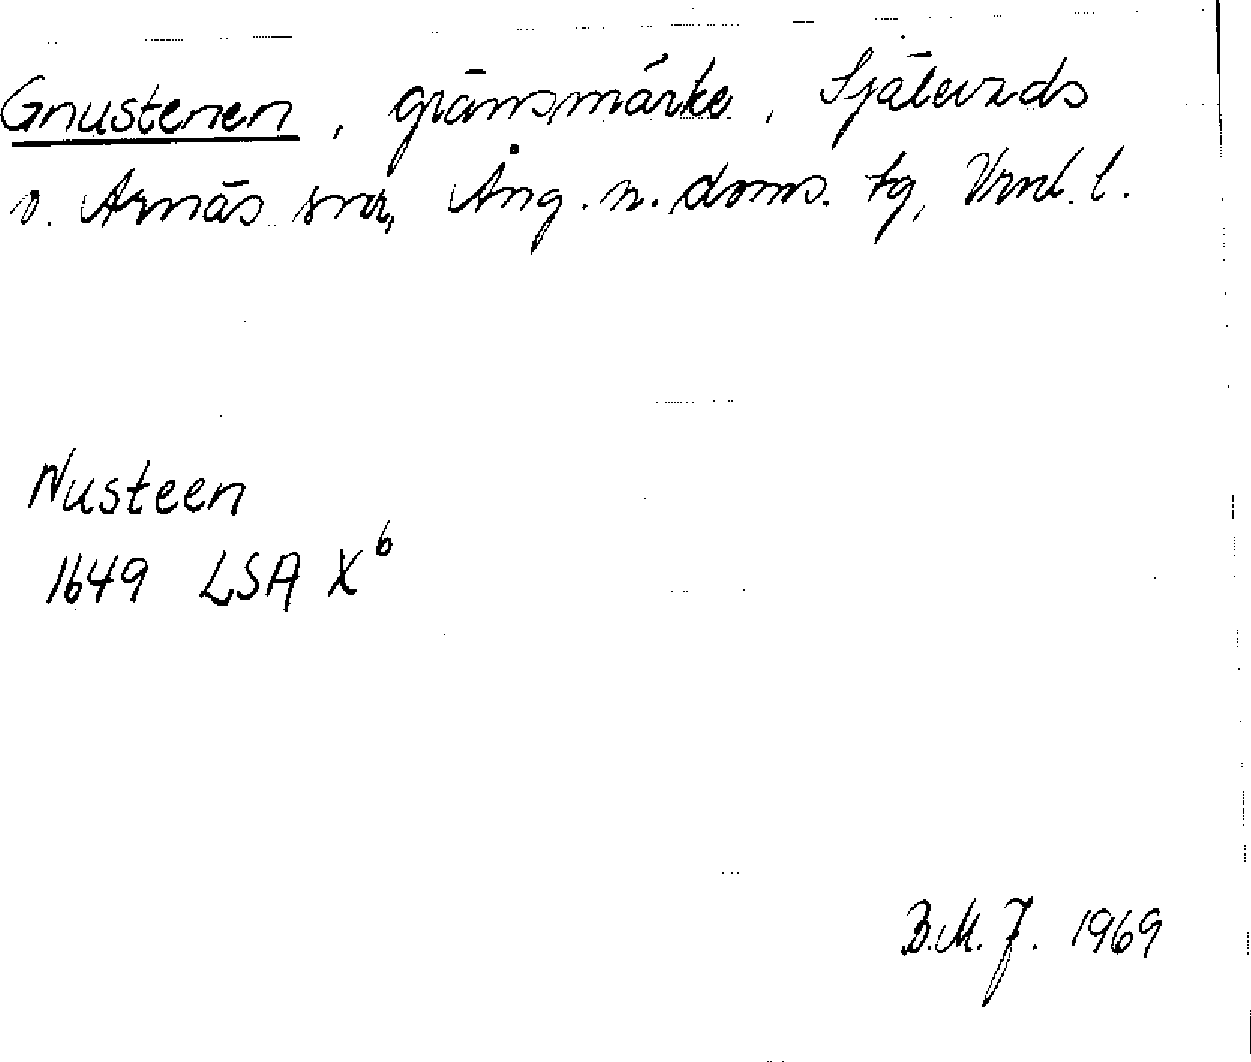 Gnustenen, gränsmärke, Själevads
o. Arnäs snr, Ång. n. doms. tg, Vrnl. l.
Nusteen
1649 LSA X^b
B.M.J. 1969